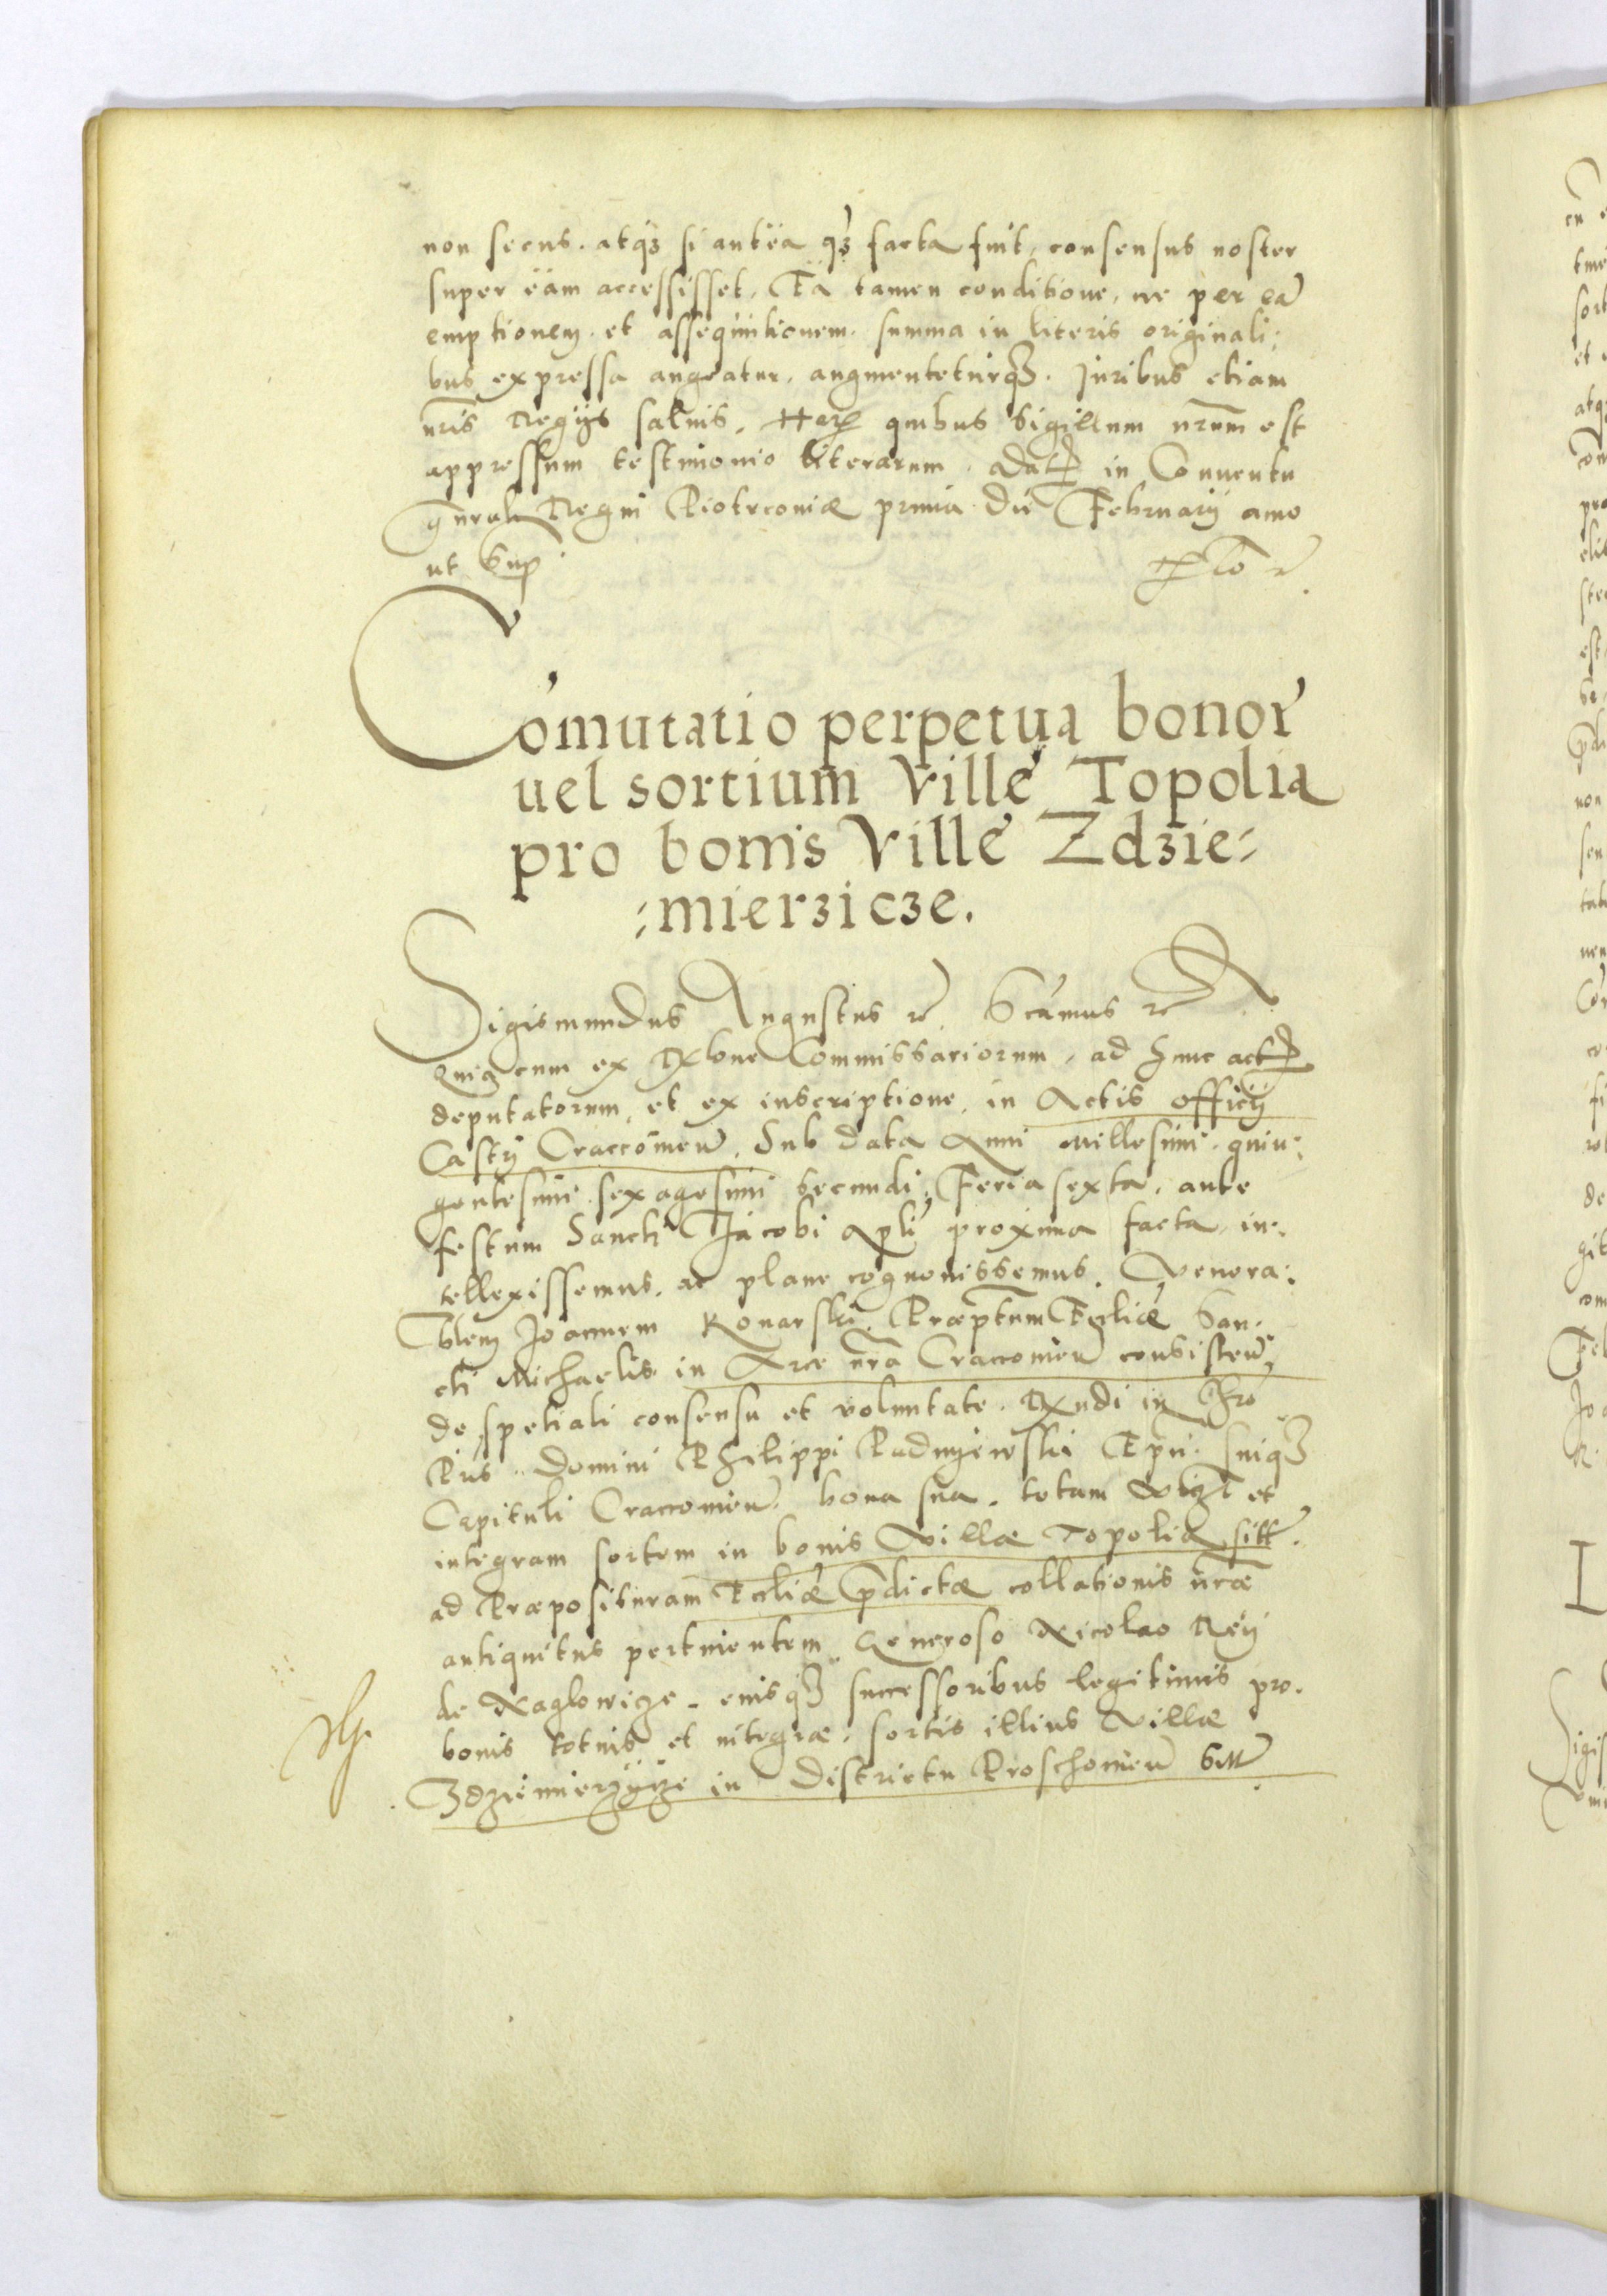 non secus. atq3 si antea q3 facta fuit, consensus noster
super eam accessisset, Ea tamen conditione, ne per eã
emptionem. et assequutionem. summa in literis originali:
bus expressa augeatur, augmenteturq3. Juribus etiam
nris Regijs saluis. Har quibus Sigillum nrum est
appressum testimonio literarum. Dat in Conuentu
gnrali Regni Piotrconiæ prima die Februarij anno
ut Sup
Comutatio perpetua bonor
uel sortium Ville Topolia
pro bonis Ville Zdzie:
:mierzicze.
Sigismundus Augustus rc. Scamus rc
Quia cum ex Rlõne Commissariorum, ad hunc act
deputatorum, et ex inscriptione, in Actis officij
Castri Cracconieñ. Sub data Anni millesimi. quin:
gentesimi sexagesimi secundi, Feria sexta. ante
festum Sancti Jacobi Apli proxima facta, in:
tellexissemus. ac plane cognouissemus. Venera:
blem Joannem Konarski. Præptum Ecliæ San:
cti Michaelis. in Arce nra Cracconieñ consisteñ,
de spetiali consensu et voluntate. Rxndi in Chro
Pris. Domini Philippi Padniewski Epi. suiq3
Capituli Cracconieñ. bona sua. totam et
integram sortem in bonis Villæ Topolia sitt.
ad Præposituram Ecliæ prædictæ collationis nræ
antiquitus pertinentem. Generoso Nicolao Reÿ
de Naglowicze. eiusq3 successoribus legitimis pro.
bonis totius et integræ. sortis illius Villæ
Zdziemierzÿcze in Districtu Proschouieñ Sitt